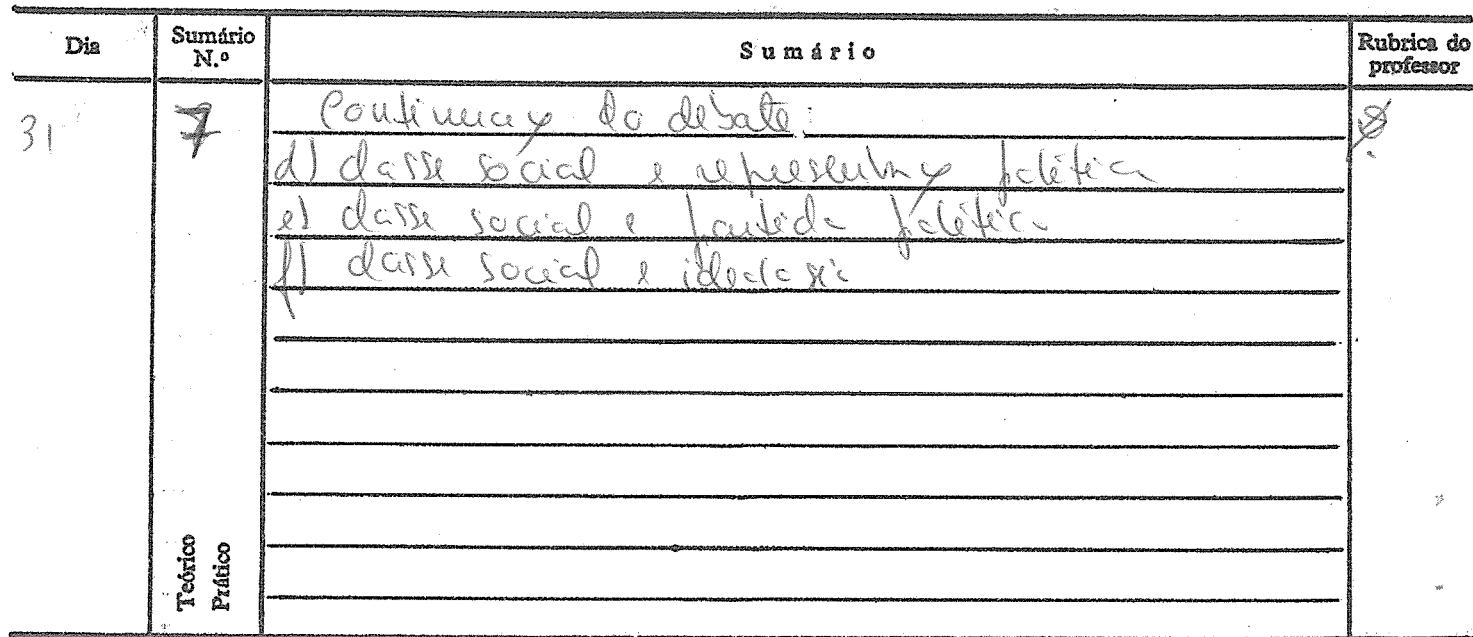 Dia Sumário N.º Sumário Rubrica do professor
31 7 Continuação do debate:
d) classe social e representação política
e) classe social e partido político
f) classe social e ideologia
Teórico
Prático